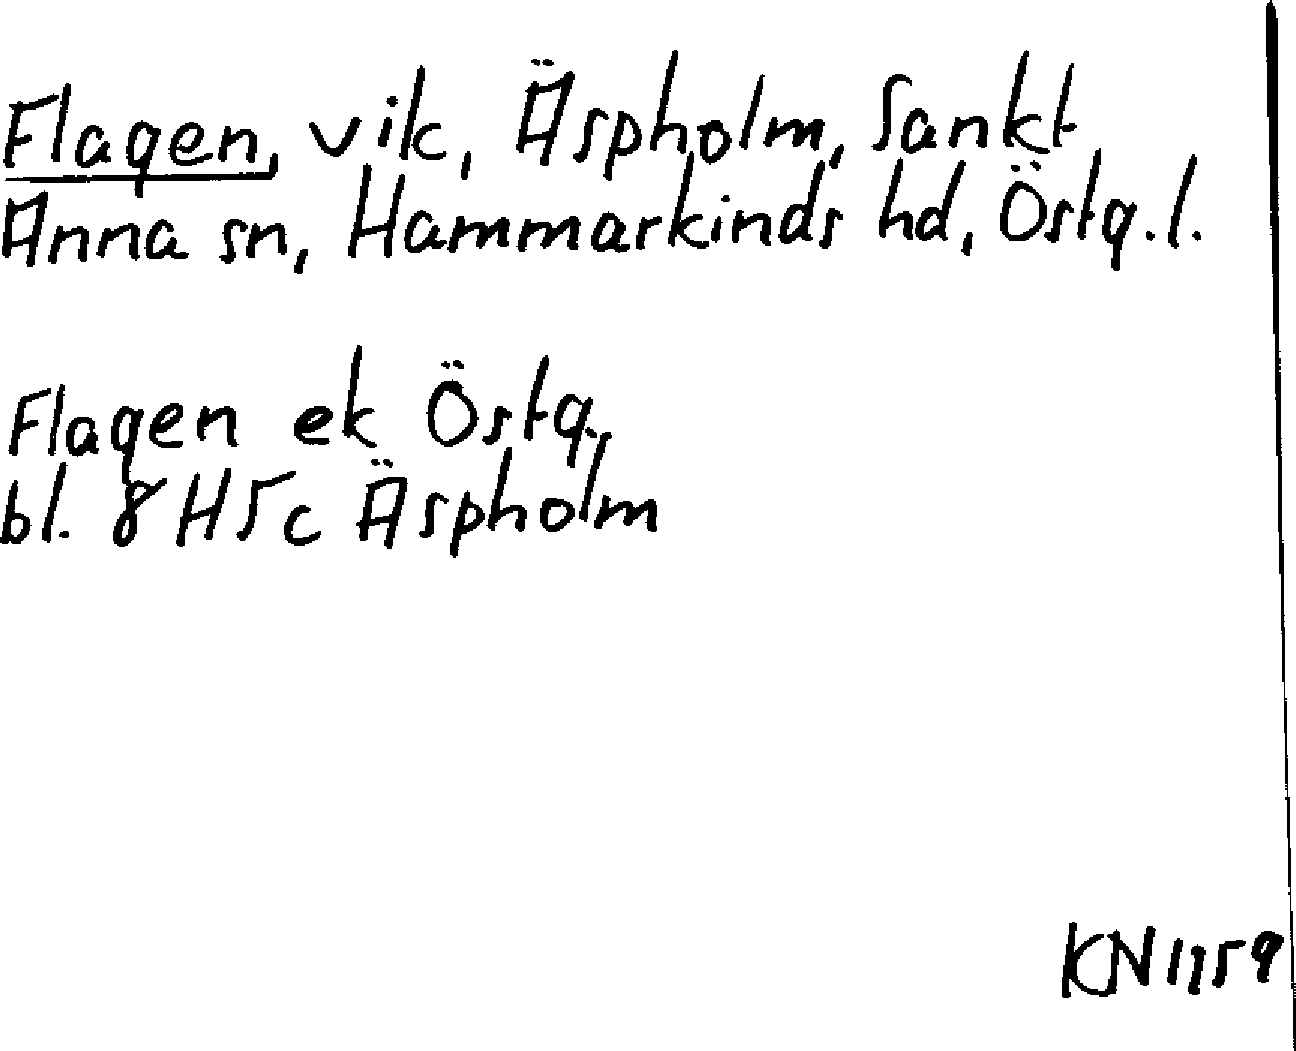 Flagen, vik, Äspholm, Sankt
Anna sn, Hammarkinds hd, Östg.l.
Flagen ek Östg.
bl. 8H5c Äspholm
KN1159